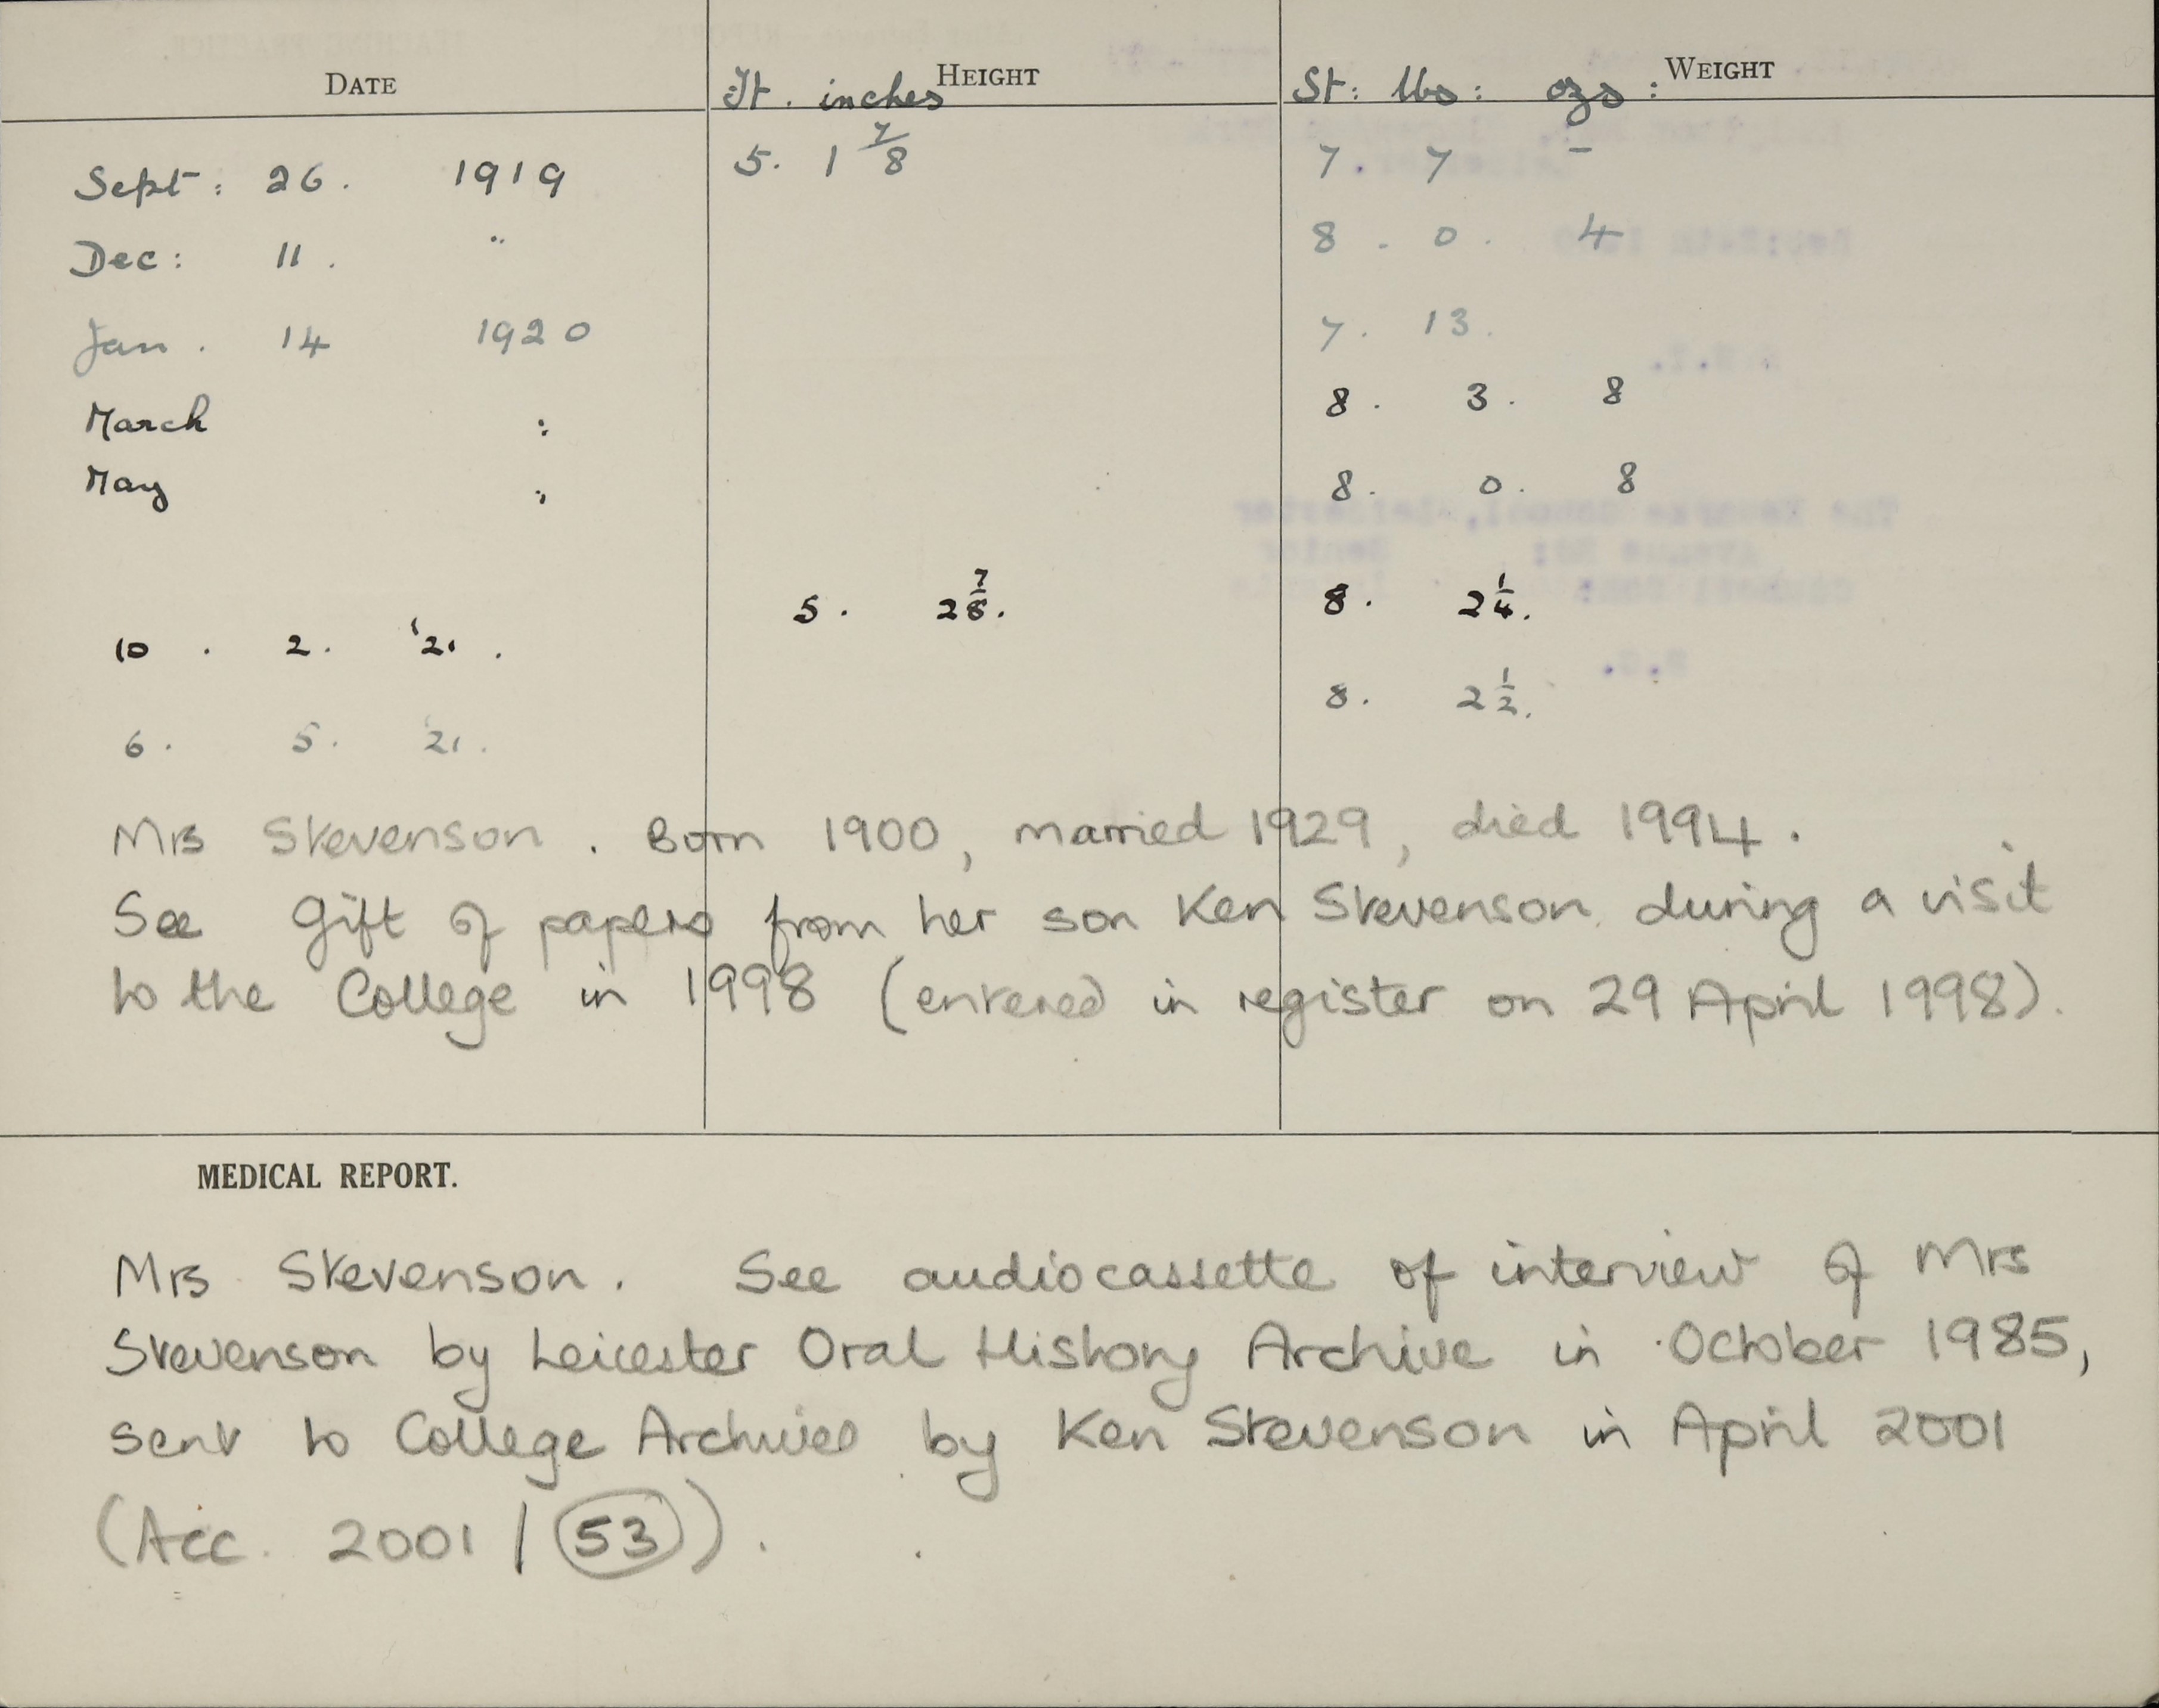 DATE HEIGHT WEIGHT
Ft. inches St: lbs: ozs:
Sept: 26. 1919 5. 1 7/8 7. 7 -
Dec: 11. " 8. 0. 4
Jan. 14 1920 7. 13.
March : 8. 3. 8
May : 8. 0. 8
10. 2. '21. 5. 2 7/8. 8. 2 1/4.
6. 5. '21. 8. 2 1/2.
Mrs Stevenson. Born 1900, married 1929, died 1994.
See gift of papers from her son Ken Stevenson during a visit
to the College in 1998 (entered in register on 29 April 1998).
MEDICAL REPORT.
Mrs Stevenson. See audiocassette of interview of Mrs
Stevenson by Leicester Oral History Archive in October 1985,
sent to College Archives by Ken Stevenson in April 2001
(Acc. 2001 / 53).